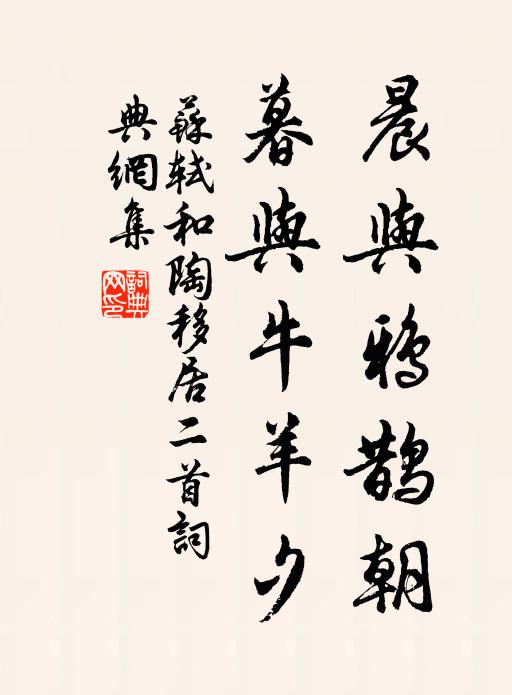 晨與鴉鵲朝
暮與牛羊夕
蘇軾和陶移居二首詞
典網集
詞典网印